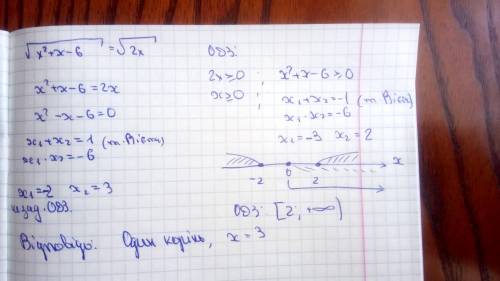 √x²+x-6 = √2x
x²+x-6=2x
x²-x-6=0
x₁+x₂=1 (т. Вієта)
x₁·x₂=-6
x₁=-2 x₂=3
незад. ОДЗ.
ОДЗ:
2x≥0 ; x²+x-6≥0
x≥0 ; x₁+x₂=-1 (т. Вієта)
x₁·x₂=-6
x₁=-3 x₂=2
-2 0 2 x
ОДЗ: [2; +∞)
Відповідь: Один корінь, x=3